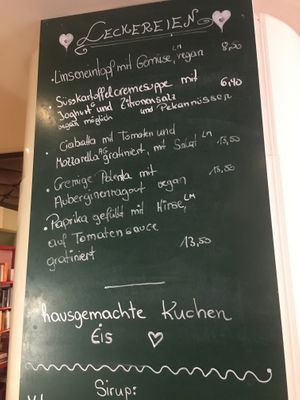 LECKEREIEN
• Linseneintopf mit Gemüse, LM vegan 8,20
• Süsskartoffelcremesuppe mit 6,40
Joghurt G und Zitronensalz
vegan möglich und Pekannüssen
Ciabatta mit Tomaten und
Mozzarella AG gratiniert, mit Salat LM 13,50
• Cremige Polenta mit 13,50
Auberginenragout vegan
• Paprika gefüllt mit Hirse, LM
auf Tomatensauce
gratiniert 13,50
hausgemachte Kuchen
Eis
Sirup: